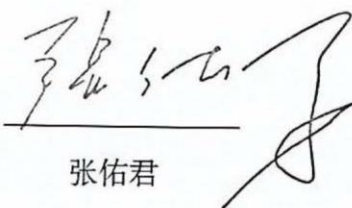 張佑君
张佑君